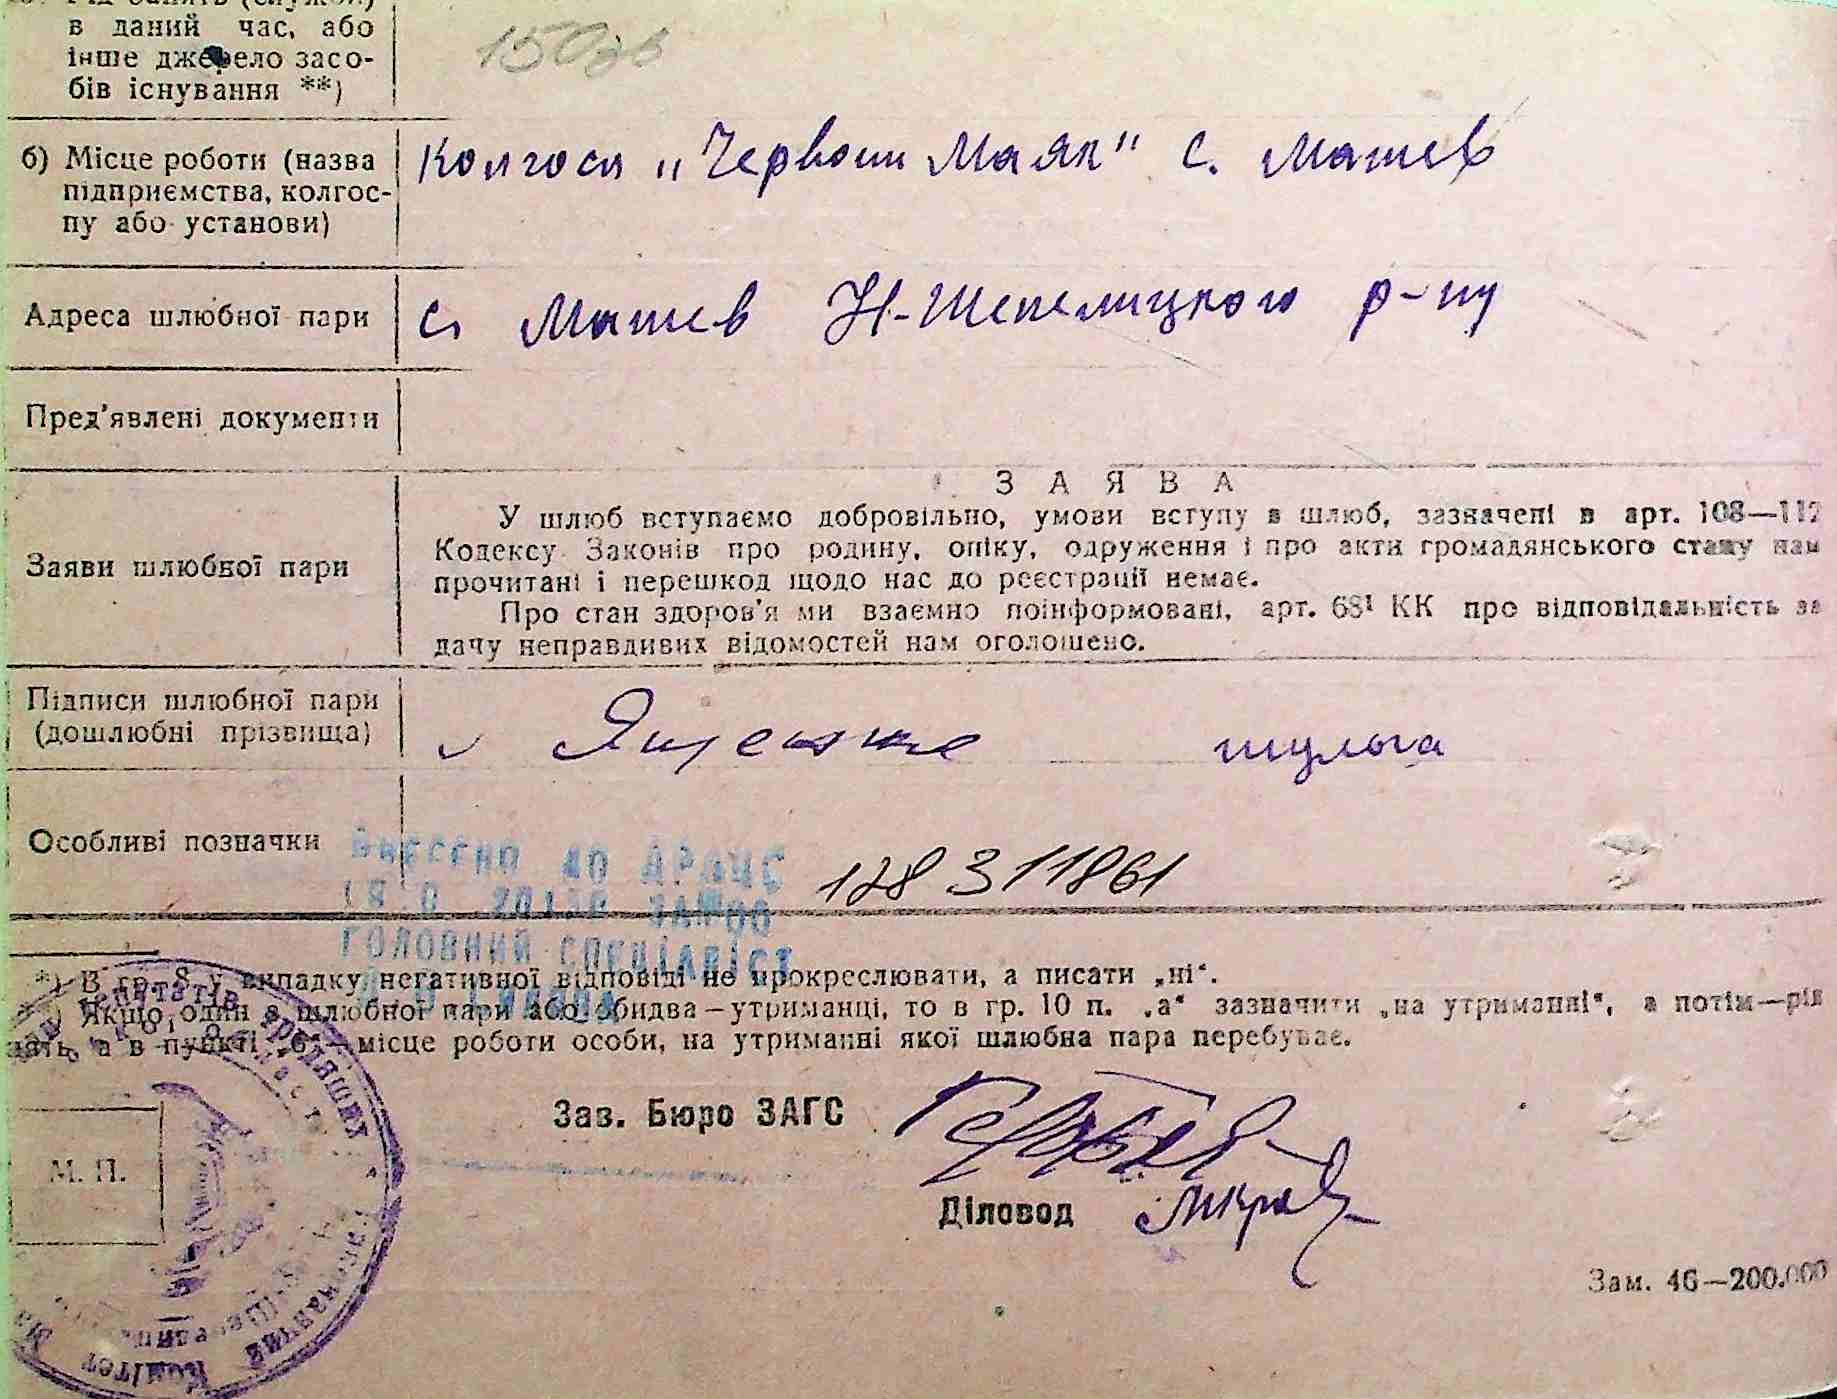 в даний час, або
інше джерело засо-
бів існування **)
б) Місце роботи (назва
підприємства, колгос-
пу або установи)
Колгосп „Червони Маяк" с. Машев
Адреса шлюбної пари
с. Машев Н-Шепелицкого р-ну
Пред'явлені документи
ЗАЯВА
У шлюб вступаємо добровільно, умови вступу в шлюб, зазначені в арт. 108—112
Кодексу Законів про родину, опіку, одруження і про акти громадянського стану нам
прочитані і перешкод щодо нас до реєстрації немає.
Про стан здоров'я ми взаємно поінформовані, арт. 68¹ КК про відповідальність за
дачу неправдивих відомостей нам оголошено.
Заяви шлюбної пари
Підписи шлюбної пари
(дошлюбні прізвища)
Ященко шульга
Особливі позначки
ВНЕСЕНО ДО ДРАЦС
128 311861
ГОЛОВНИЙ СПЕЦІАЛІСТ
*) В гр. 8 у випадку негативної відповіді не прокреслювати, а писати „ні".
Якщо один з шлюбної пари або обидва—утриманці, то в гр. 10 п. „а" зазначити „на утриманні", а потім—рід
а в пункті „б"—місце роботи особи, на утриманні якої шлюбна пара перебуває.
Зав. Бюро ЗАГС
М. П.
Діловод
Зам. 46—200.000